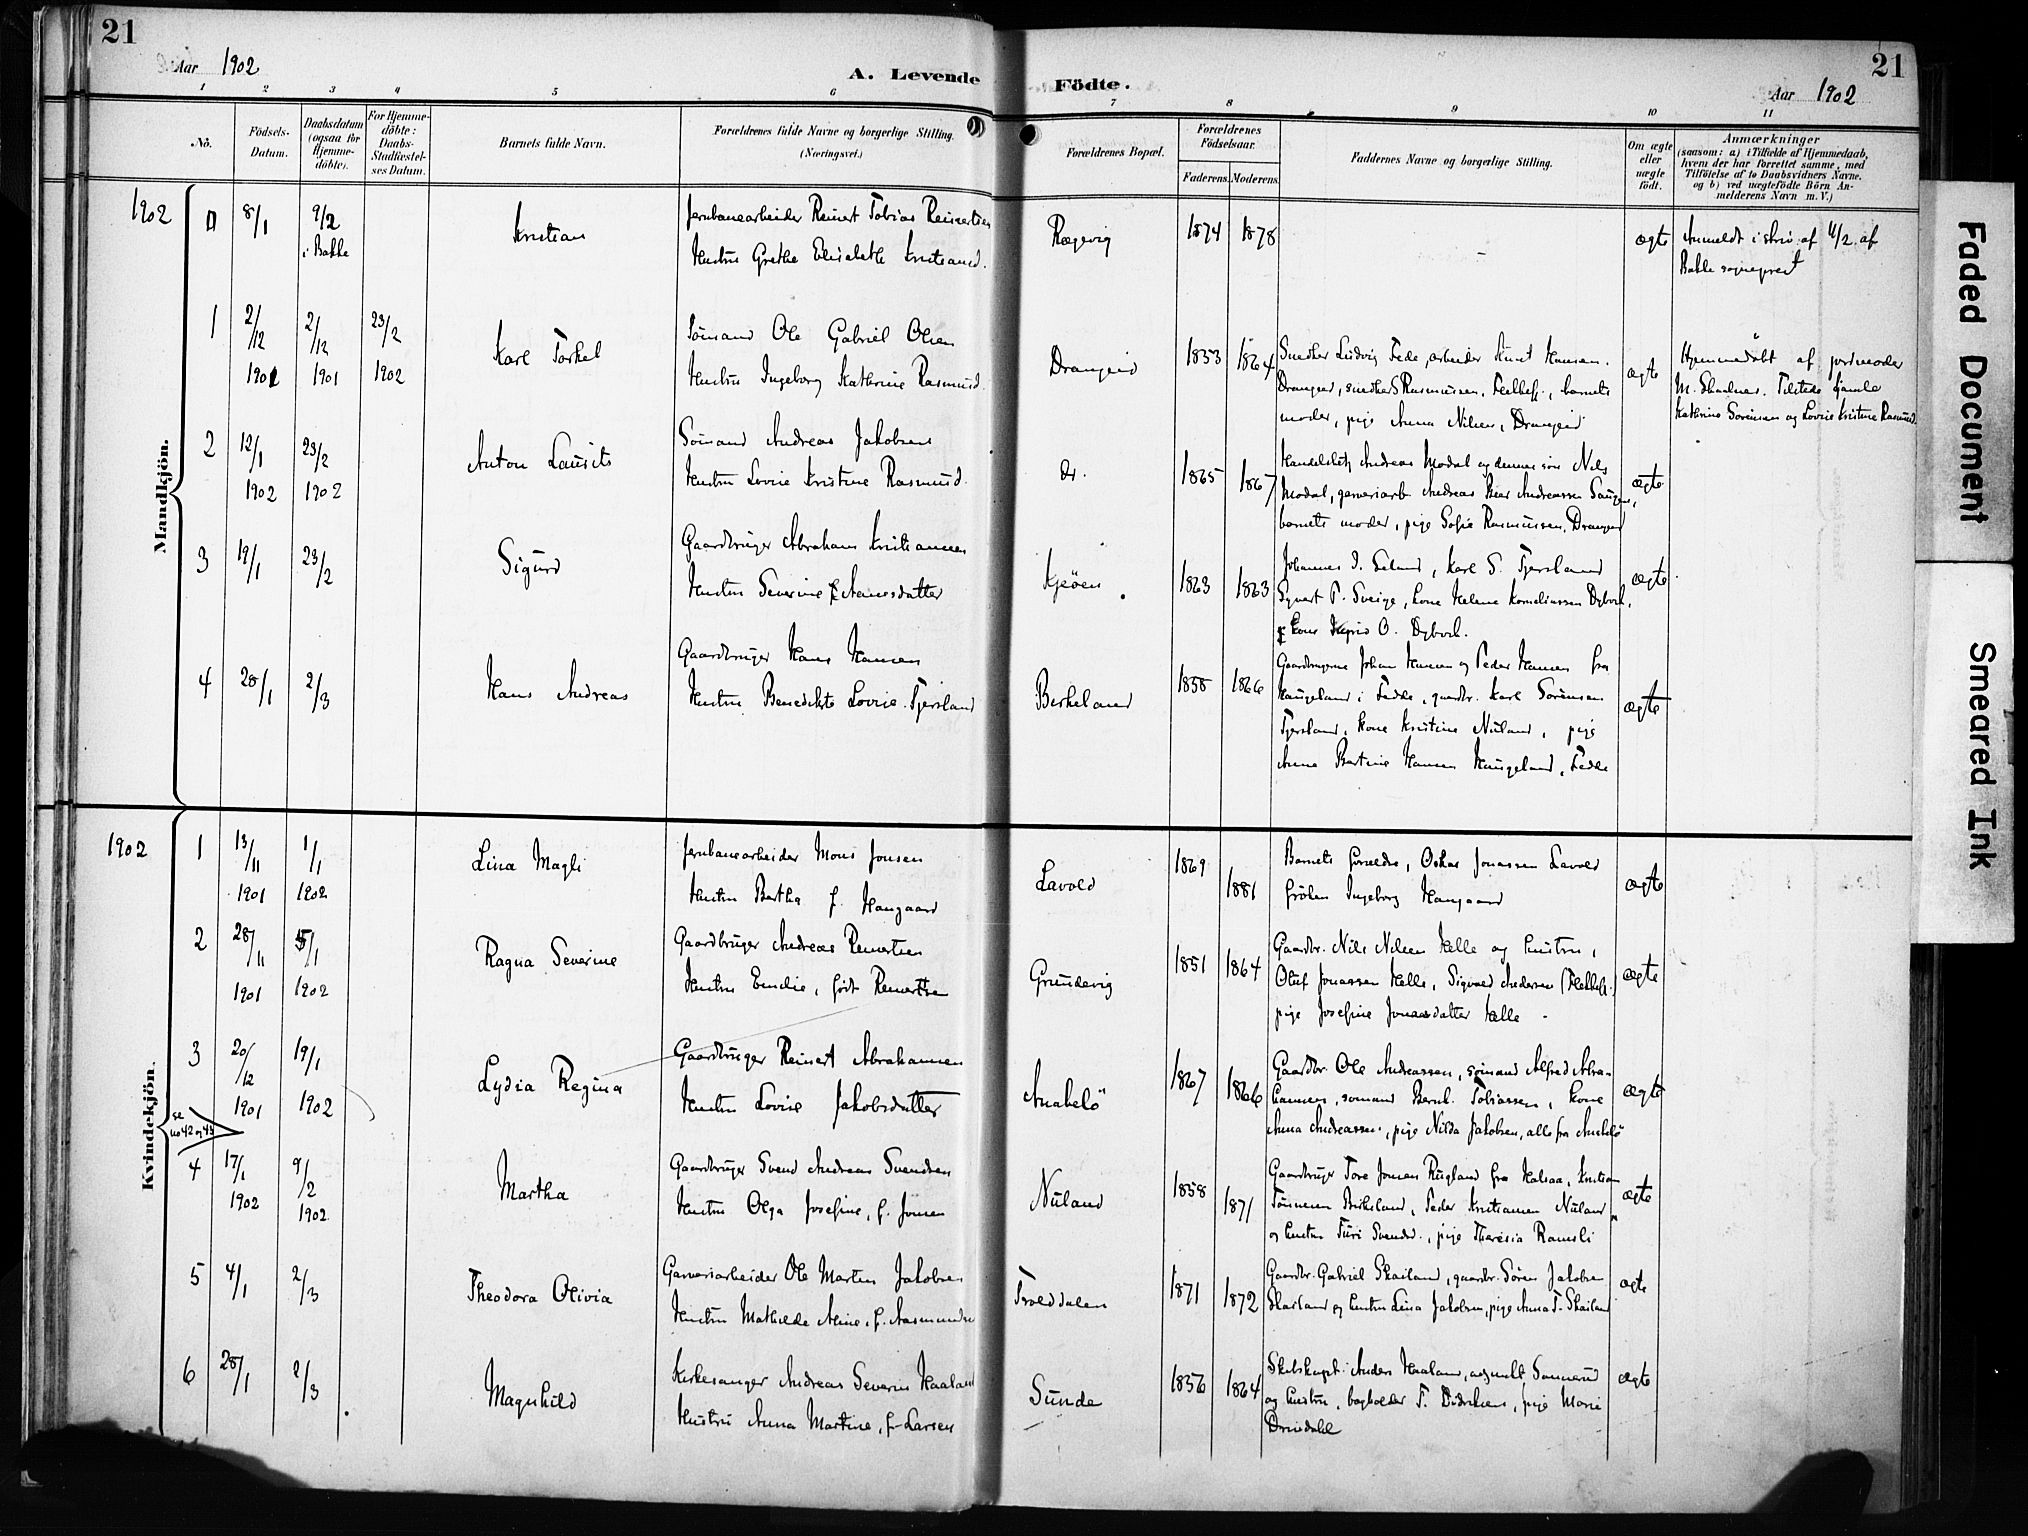 21
Aar 1902
A. Levende
Födte.
21
Aar 1902
1 2 3 4 5 6 7 8 9 10 11
No.
Födsels-
Datum.
Daabsdatum
(ogsaa for
Hjemme-
döbte).
For Hjemme-
döbte:
Daabs-
Stadfæstel-
ses Datum.
Barnets fulde Navn.
Forældrenes fulde Navne og borgerlige Stilling.
(Næringsvei.)
Forældrenes Bopæl.
Forældrenes
Födselsaar.
Faderens. Moderens.
Faddernes Navne og borgerlige Stilling.
Om ægte
eller
uægte
födt.
Anmærkninger
(saasom: a) i Tilfælde af Hjemmedaab,
hvem der har forrettet samme, med
Tilföielse af to Daabsvidners Navne,
og b) ved uægtefödte Börn An-
melderens Navn m. V.)
Mandkjön.
1902
0 8/1 9/2
i Bakke
Kristian
Jernbanearbeider Reinert Tobias Reinertsen
Hustru Grethe Elisabeth Kristiansd.
Rægevig
1874 1878
-
ægte
Anmeldt i skriv. af 11/2 af
Bakke sogneprest
1 2/12 1901 2/12 1901 23/2 1902
Karl Torkel
Sömand Ole Gabriel Olsen
Hustru Ingeborg Kathrine Rasmusd.
Drangeid
1853 1864
Snedker Ludvig Fede, arbeider Knut Hansen
Drangeid, snedker S Rasmussen, Flekkefj., barnets
moder, pige Anna Nilsen, Drangeid
ægte
Hjemmedöbt af jordmoder
M. Tilstede
Kathrine Sörensen og Lovise Kristine Rasmusd.
2 12/1 1902 23/2 1902
Anton Laurits
Sömand Andreas Jakobsen
Hustru Lovise Kristine Rasmusd.
do.
1865 1867
Andreas Modal og dennes sön Nils
Modal, garveriarb. Andreas Andreassen
barnets moder, pige Sofie Rasmussen, Drangeid
ægte
3 19/1 23/2
Sigurd
Gaardbruger Abraham Kristiansen
Hustru Severine f.
Kjöen
1863 1863
Johannes I. Eeland, Karl S. Tjersland
Syvert T. Sveige, kone Helene Korneliussen Dybvik,
kone O. Dybvik.
ægte
4 28/1 2/3
Hans Andreas
Gaardbruger Hans Hansen
Hustru Benedikte Lovise Tjersland
Birkeland
1858 1866
Gaardbrugerne Johan Hansen og Peder Hansen fra
Haugeland i Fedde, gaardbr. Karl Sörensen
Tjersland, kone Kristine Nuland, pige
Anna Bertine Hansen Haugeland, Fedde
ægte
Kvindekjön.
1902
1 13/11 1901 1/1 1902
Lina Magli
Jernbanearbeider Mons Jonsen
Hustru Bertha f. Haugaard
Lavold
1869 1881
Barnets forældre, Oskar Jonassen Lavold
fröken Ingeborg Haugaard
ægte
2 28/11 1901 5/1 1902
Ragna Severine
Gaardbruger Andreas Reinertsen
Hustru Emilie, födt Reinertsen
Grundevig
1851 1864
Gaardbr. Nils Nilsen Helle og hustru,
Oluf Jonassen Helle, Sigvald Andersen (Flekkefj.)
pige Josefine Jonasdatter Helle -
ægte
3 20/12 1901 19/1 1902
Lydia Regina
Gaardbruger Reinert Abrahamsen
Hustru Lovise Jakobsdatter
Anabelö
1867 1866
Gaardbr. Ole Andreassen, sömand Alfred Abra-
hamsen, sömand Bernh. Tobiassen, kone
Anna Andreassen, pige Nilda Jakobsen, alle fra Anabelö
ægte
se
no 42 og 43
4 17/1 1902 9/2 1902
Martha
Gaardbruger Svend Andreas Svendsen
Hustru Olga Josefine, f. Jonsen
Nuland
1858 1871
Gaardbruger Tore Jonsen Rugland fra Halsaa, Kristian
Tönnesen Birkeland, Peder Kristiansen Nuland
og hustru Turi Svendsd., pige Theresia Ramsli
ægte
5 4/1 2/3
Theodora Olivia
Garveriarbeider Ole Martin Jakobsen
Hustru Mathilde Aline, f. Aasmundsen
Trolddalen
1871 1872
Gaardbr. Gabriel Skailand, gaardbr. Sören Jakobsen
Skailand og hustru Lina Jakobsen, pige Anna T. Skailand
ægte
6 28/1 2/3
Magnhild
Kirkesanger Andreas Severin Haaland
Hustru Anna Martine, f. Larsen
Sunde
1856 1864
Skibskapt. Anders Haaland,
og hustru, bogholder F. Didriksen, pige Marie
Drivdahl
ægte
Faded Document
Smeared Ink